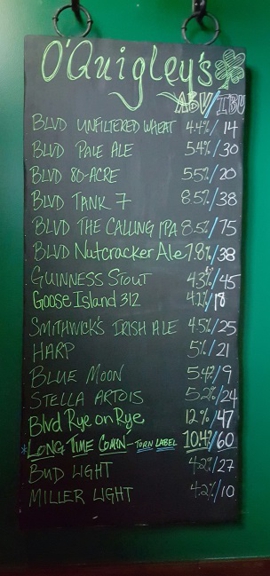 O'Quigley's
ABV/IBU
BLVD UNFILTERED WHEAT 4.4%/14
BLVD PALE ALE 5.4%/30
BLVD 80-ACRE 5.5%/20
BLVD TANK 7 8.5%/38
BLVD THE CALLING IPA 8.5%/75
BLVD Nutcracker Ale 7.8%/38
GUINNESS STOUT 4.3%/45
Goose Island 312 4.1%/18
SMITHWICK'S IRISH ALE 4.5%/25
HARP 5%/21
BLUE MOON 5.4%/9
STELLA ARTOIS 5.2%/24
Blvd Rye on Rye 12%/47
*LONG TIME COMIN - TORN LABEL 10.4%/60
BUD LIGHT 4.2%/27
MILLER LIGHT 4.2%/10